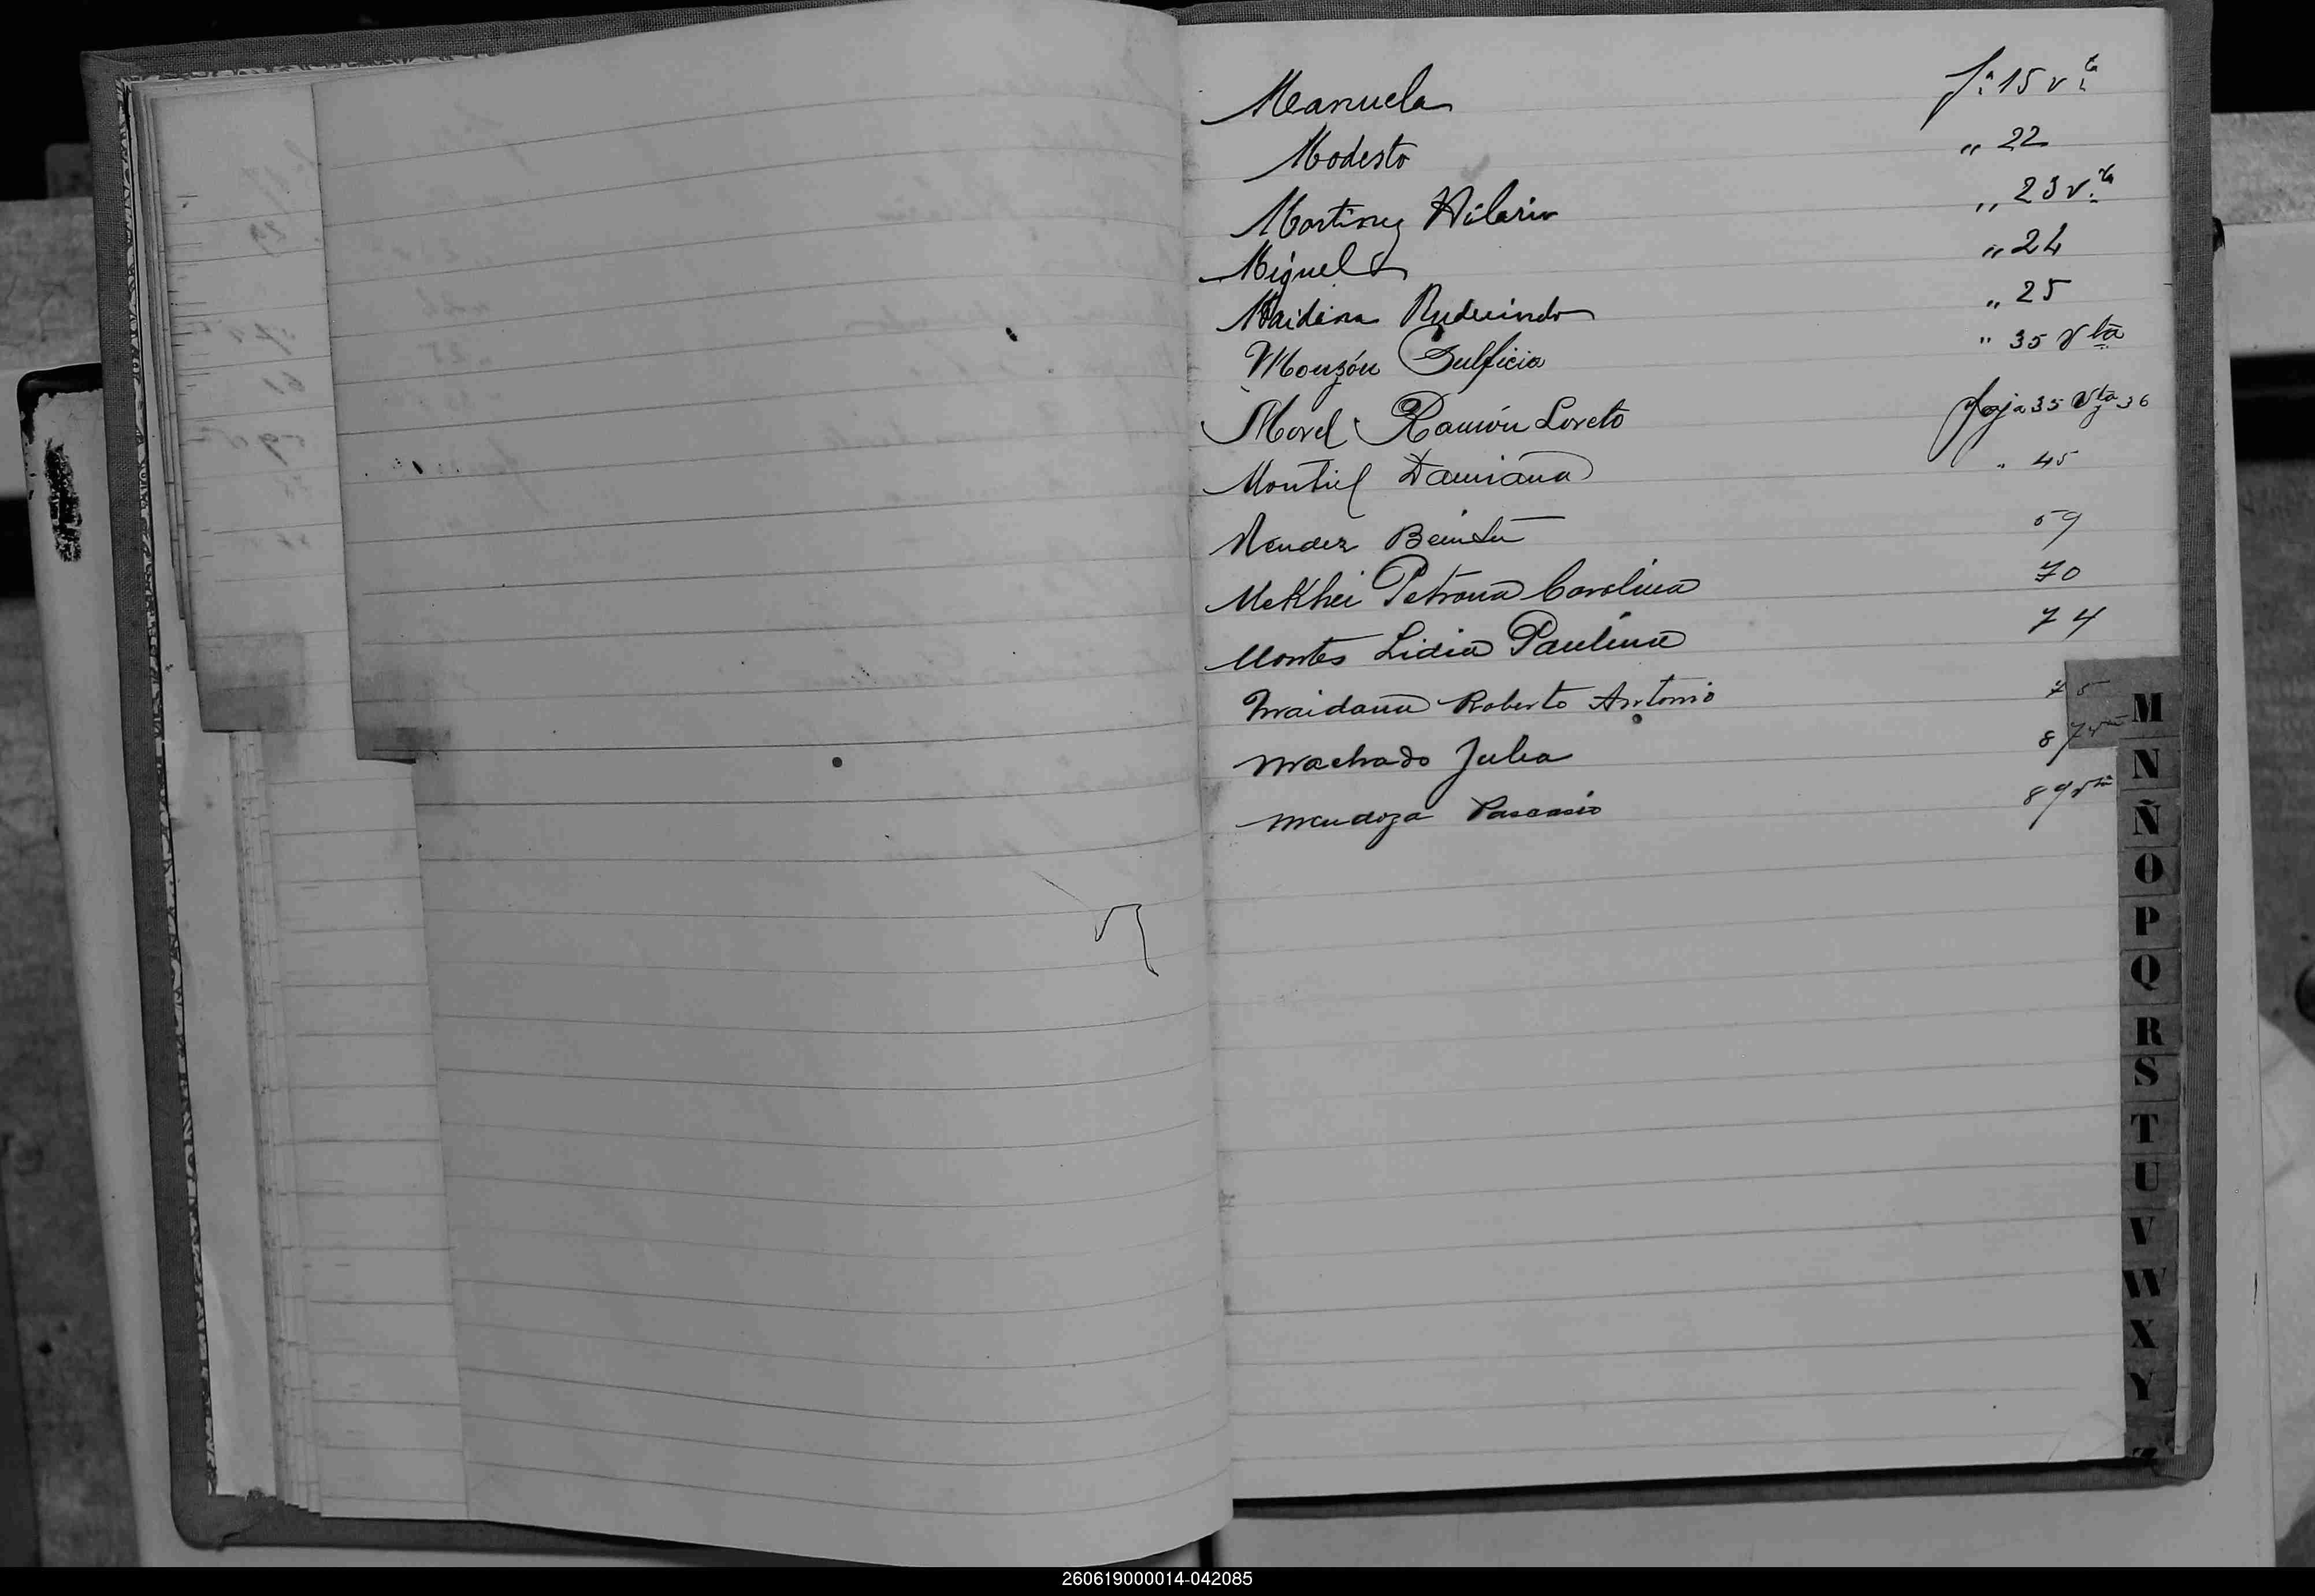 Manuela fa 15 vta
Modesto " 22
Martinez Hilario " 23 vta
Miguel " 24
Maidana Rudecindo " 25
Monzón Sulficia " 35 Vta
Morel Ramón Loreto foja 35 Vta y 36
Montiel Damiana " 45
Mendez Benita 59
Petrona Carolina 70
Montes Lidia Paulina 74
Maidana Roberto Antonio 75
Machado Julia 87 vta
Mendoza Pascasio 89 vta
M
N
Ñ
O
P
Q
R
S
T
U
V
W
X
Y
Z
260619000014-042085